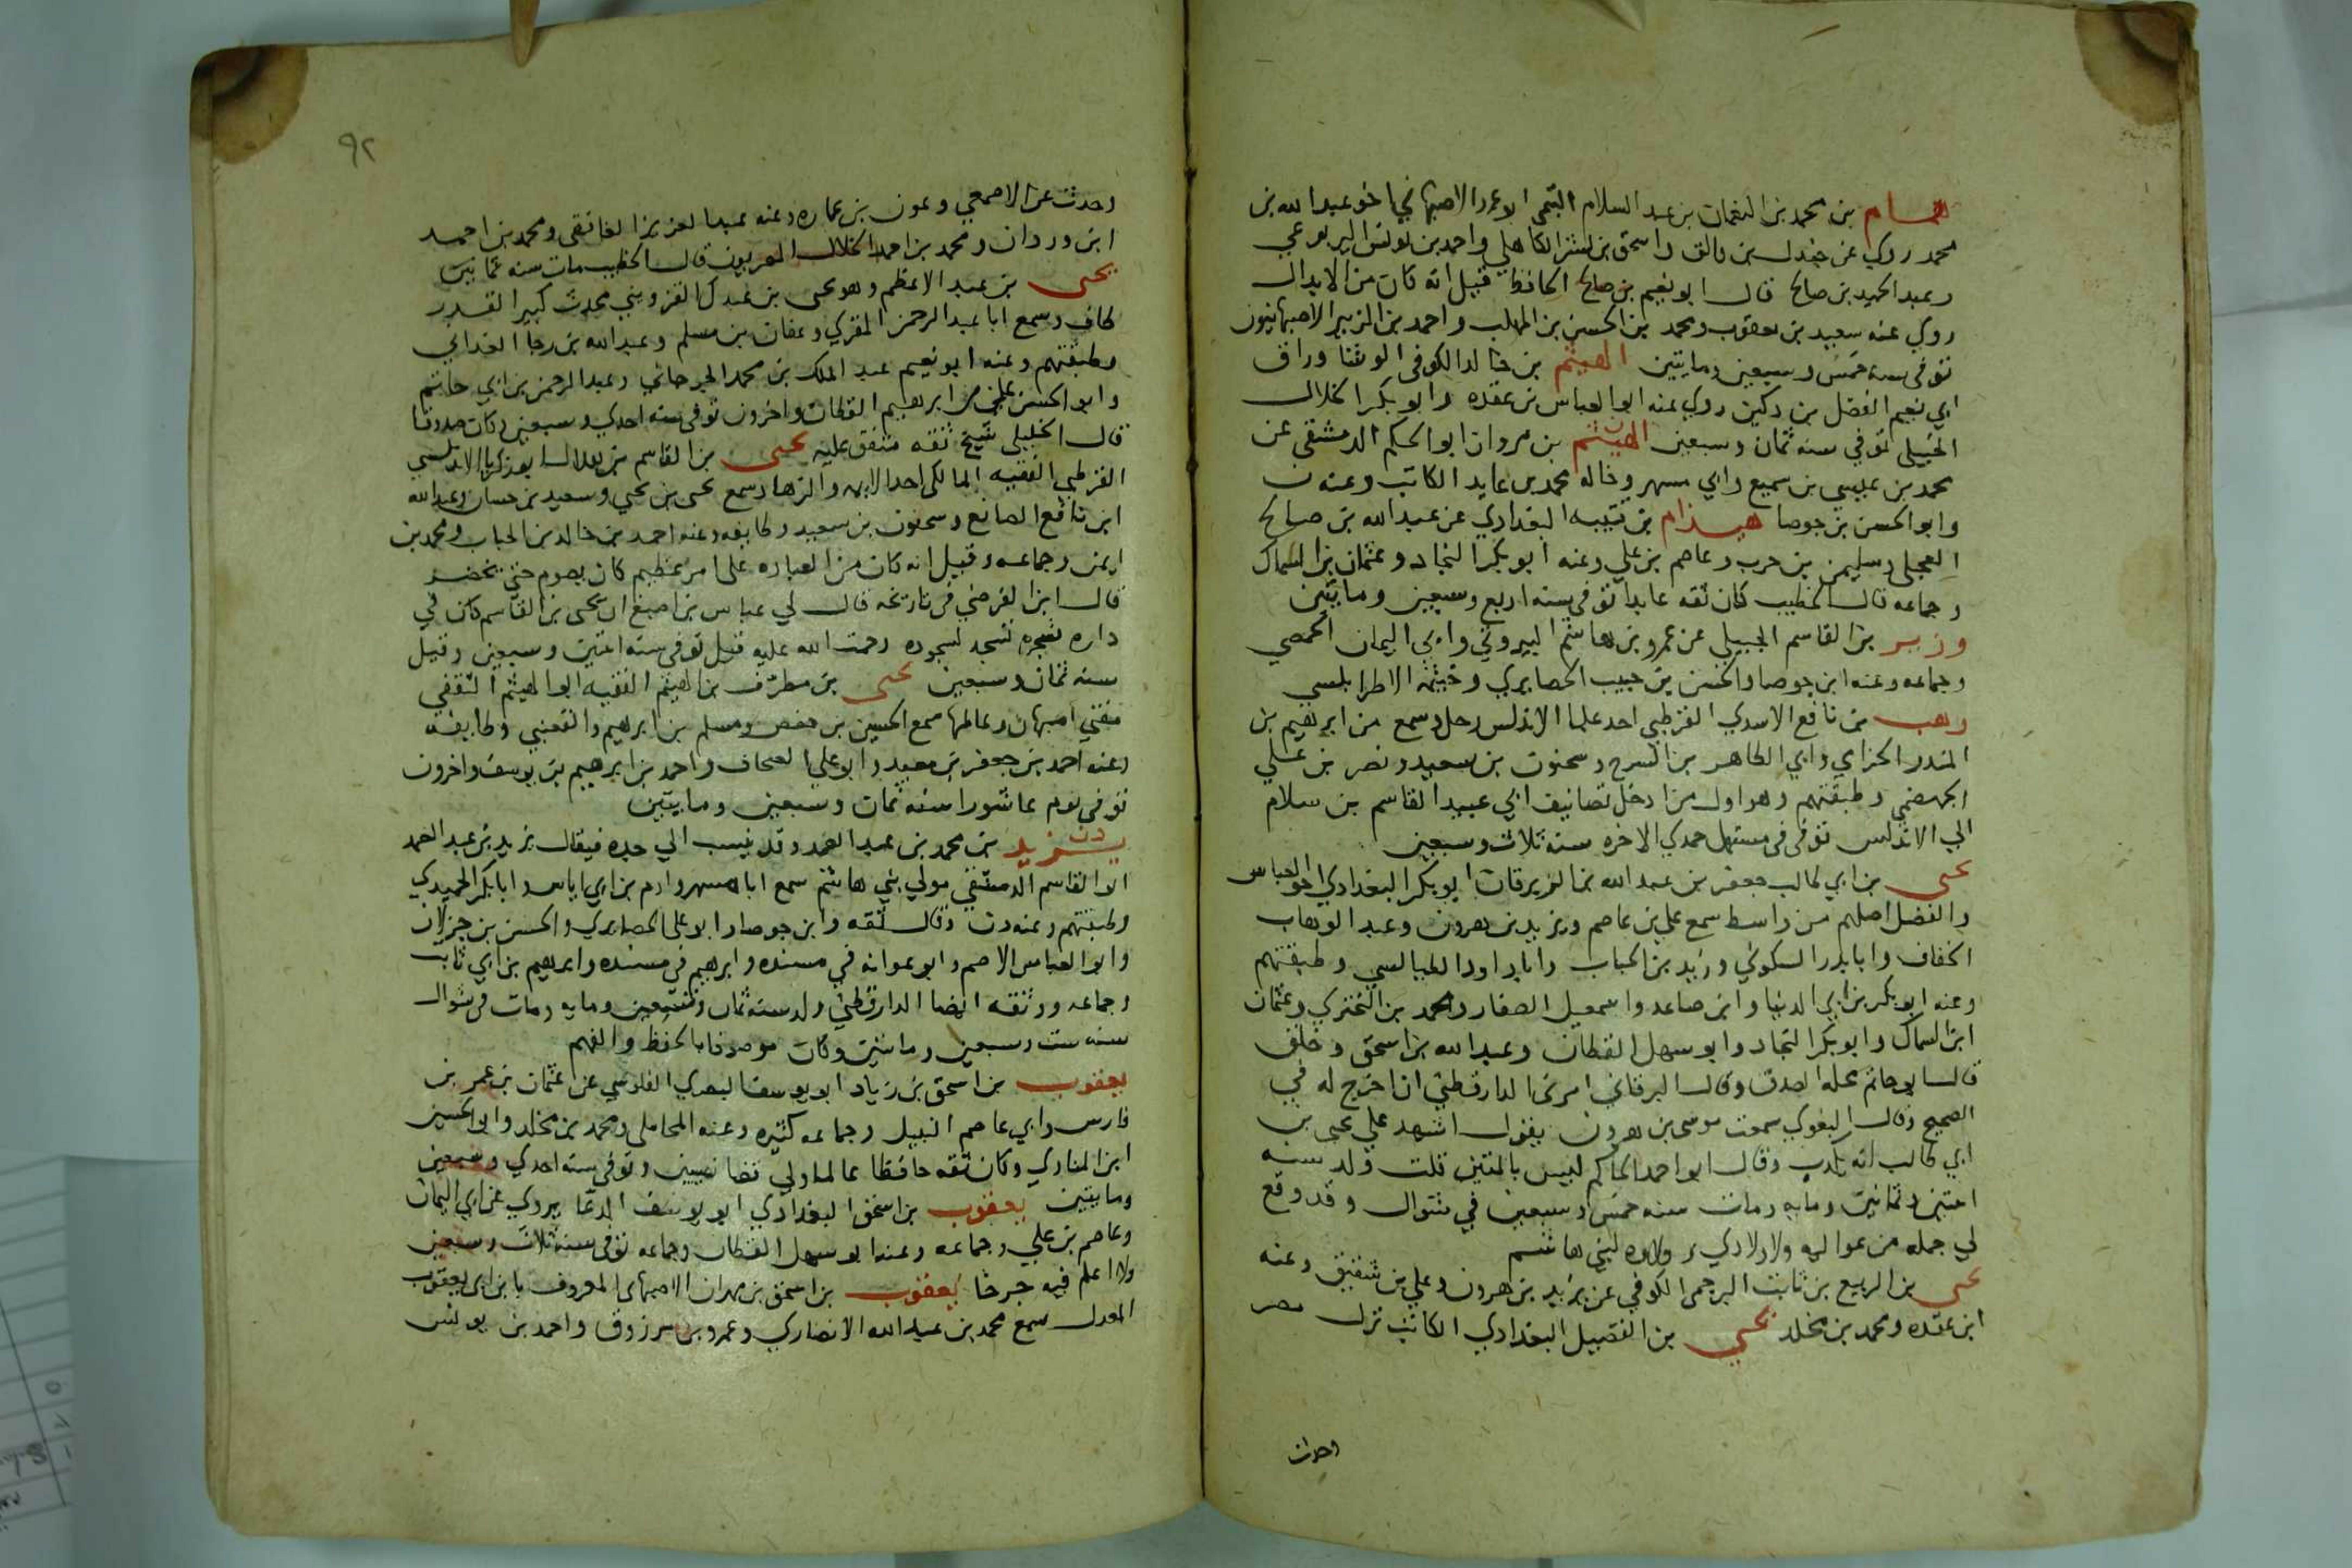 همام بن محمد بن النعمان بن عبد السلام التيمي الاصبهاني اخو عبد الله بن
محمد روي عن جندل بن والق واسحق بن بشر الكاهلي واحمد بن يونس اليربوعي
وعبد الحميد بن صالح قال ابو نعيم بن صالح الحافظ قيل انه كان من الابدال
روي عنه سعيد بن يعقوب ومحمد بن الحسن بن المهلب واحمد بن الزبير الاصبهانيون
توفي سنه خمس وسبعين ومايتين الهيثم بن خالد الكوفي الوشا وراق
ابي نعيم الفضل بن دكين روي عنه ابو العباس بن عقده وابو بكر الخلال
الحنبلي توفي سنه ثمان وسبعين الهيثم بن مروان ابو الحكم الدمشقي عن
محمد بن عيسي بن سميع وابي مسهر وخاله محمد بن عايد الكاتب وعنه ن
وابو الحسن بن جوصا هيذام بن قتيبه البغدادي عن عبد الله بن صالح
العجلي وسليمن بن حرب وعاصم بن علي وعنه ابو بكر النجاد وعثمان بن السماك
وجماعه قال الخطيب كان ثقه عابدا توفي سنه اربع وسبعين ومايتين
وزير بن القاسم الجبيلي عن عمرو بن هاشم البيروتي وابي اليمان الحمصي
وجماعه وعنه ابن جوصا والحسن بن حبيب الحصايري وخيثمه الاطرابلسي
وهب بن نافع الاسدي القرطبي احد علما الاندلس رحل وسمع من ابرهيم بن
المنذر الحزامي وابي الطاهر بن السرح وسحنون بن سعيد ونصر بن علي
الجهضمي وطبقتهم وهو اول من ادخل تصانيف ابي عبيد القاسم بن سلام
الي الاندلس توفي في مستهل جمدي الاخره سنه ثلاث وسبعين
يحيي بن ابي طالب جعفر بن عبد الله بن الزبرقان ابو بكر البغدادي اخو العباس
والفضل اصلهم من واسط سمع علي بن عاصم ويزيد بن هرون وعبد الوهاب
الخفاف وابا بدر السكوني وزيد بن الحباب وابا داود الطيالسي وطبقتهم
وعنه ابو بكر بن ابي الدنيا وابن صاعد واسمعيل الصفار ومحمد بن البختري وعثمان
ابن السماك وابو بكر النجاد وابو سهل القطان وعبد الله بن اسحق وخلق
قال ابو حاتم محله الصدق وقال البرقاني امرني الدارقطني ان اخرج له في
الصحيح وقال البغوي سمعت موسي بن هرون يقول اشهد علي يحيي بن
ابي طالب انه يكذب وقال ابو احمد الحاكم ليس بالمتين قلت ولد سنه
اثنتين وثمانين ومايه ومات سنه خمس وسبعين في شوال وقد وقع
لي جمله من عواليه ولاولادي وولاوه لبني هاشم
يحيي بن الربيع بن ثابت البرجمي الكوفي عن يزيد بن هرون وعلي بن شقيق وعنه
ابن عقده ومحمد بن مخلد يحيي بن الفضيل البغدادي الكاتب نزل مصر
وحدث
٩٢
وحدث عن الاصمعي وعون بن عماره وعنه عبد العزيز الغافقي ومحمد بن احمد
ابن وردان ومحمد بن احمد الخلال المصريون قال الخطيب مات سنه ثمانين
يحيي بن عبد الاعظم وهو يحيي بن عبدك القزويني محدث كبير القدر
طاف وسمع ابا عبد الرحمن المقري وعفان بن مسلم وعبد الله بن رجا الغداني
وطبقتهم وعنه ابو نعيم عبد الملك بن محمد الجرجاني وعبد الرحمن بن ابي حاتم
وابو الحسن علي بن ابرهيم القطان واخرون توفي سنه احدي وسبعين وكان صدوقا
قال الخليلي شيخ ثقه متفق عليه يحيي بن القاسم بن هلال ابو زكريا الاندلسي
القرطبي الفقيه المالكي احد الايمه والزهاد سمع يحيي بن يحيي وسعيد بن حسان وعبد الله
ابن نافع الصايغ وسحنون بن سعيد وطايفه وعنه احمد بن خالد بن الحباب ومحمد بن
ايمن وجماعه وقيل انه كان من العباده علي امر عظيم كان يصوم حتي يخضر
قال ابن الفرضي في تاريخه قال لي عباس بن اصبغ ان يحيي بن القاسم كان في
داره شجره تسجد لسجوده رحمت الله عليه قيل توفي سنه اثنتين وسبعين وقيل
سنه ثمان وسبعين يحيي بن مطرف بن الهيثم الفقيه ابو الهيثم الثقفي
مفتي اصبهان وعالمها سمع الحسين بن حفص ومسلم بن ابرهيم والقعنبي وطايفه
وعنه احمد بن جعفر بن معبد وابو علي الصحاف واحمد بن ابرهيم بن يوسف واخرون
توفي يوم عاشورا سنه ثمان وسبعين ومايتين
يزيد بن محمد بن عبد الصمد وقد ينسب الي جده فيقال يزيد بن عبد الصمد
ابو القاسم الدمشقي مولي بني هاشم سمع ابا مسهر وادم بن ابي اياس وابا بكر الحميدي
وطبقتهم وعنه د ن وقال ثقه وابن جوصا وابو علي الحصايري والحسن بن جزلان
وابو العباس الاصم وابو عوانه في مسنده وابرهيم في مسنده وابرهيم بن ابي ثابت
وجماعه ووثقه ايضا الدارقطني ولد سنه ثمان وتسعين ومايه ومات في شوال
سنه ست وسبعين ومايتين وكان موصوفا بالحفظ والفهم
يعقوب بن اسحق بن زياد ابو يوسف البصري القلوسي عن عثمان بن عمر بن
فارس وابي عاصم النبيل وجماعه كثيره وعنه المحاملي ومحمد بن مخلد وابو الحسين
ابن المنادي وكان ثقه حافظا عالما ولي قضا نصيبين وتوفي سنه احدي وسبعين
ومايتين يعقوب بن اسحق البغدادي ابو يوسف الدعا يروي عن ابي اليمان
وعاصم بن علي وجماعه وعنه ابو سهل القطان وجماعه توفي سنه ثلاث وسبعين
ولا اعلم فيه جرحا يعقوب بن اسحق بن مهران الاصبهاني المعروف بابن ابي يعقوب
المعدل سمع محمد بن عبد الله الانصاري وعمرو بن مرزوق واحمد بن يونس